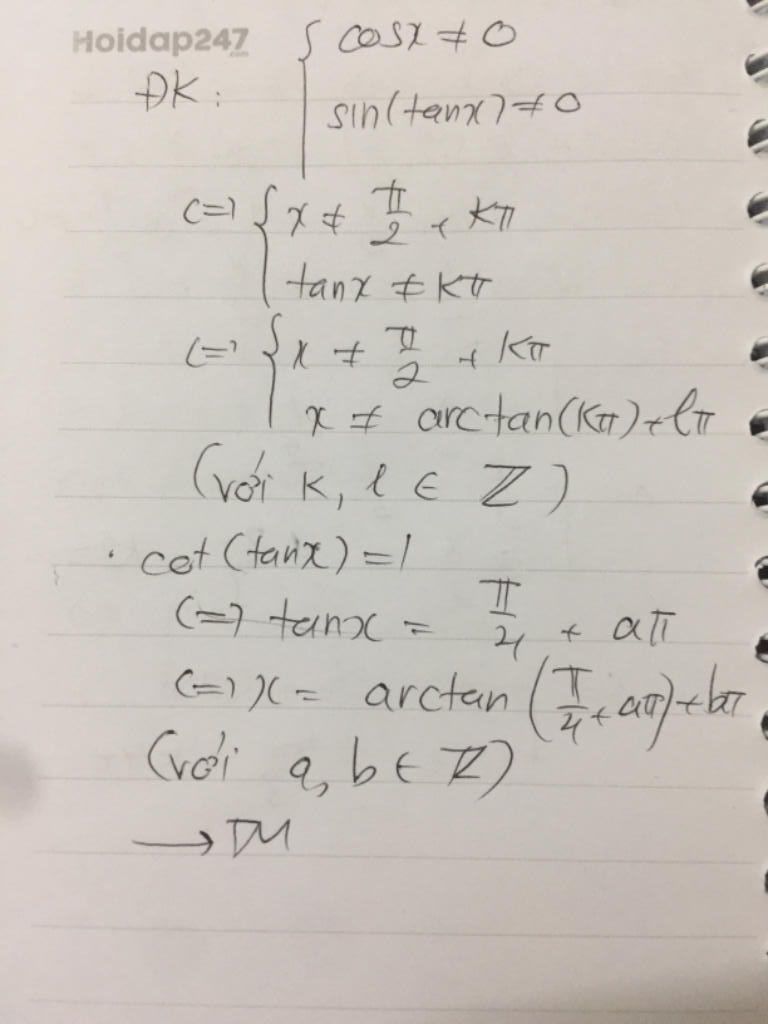 Hoidap247.com
ĐK: { cosx ≠ 0
sin(tanx) ≠ 0
<=> { x ≠ π/2 + kπ
tanx ≠ kπ
<=> { x ≠ π/2 + kπ
x ≠ arctan(kπ) + lπ
(với k, l ∈ Z)
. cot(tanx) = 1
<=> tanx = π/4 + aπ
<=> x = arctan(π/4 + aπ) + bπ
(với a, b ∈ Z)
→ TM